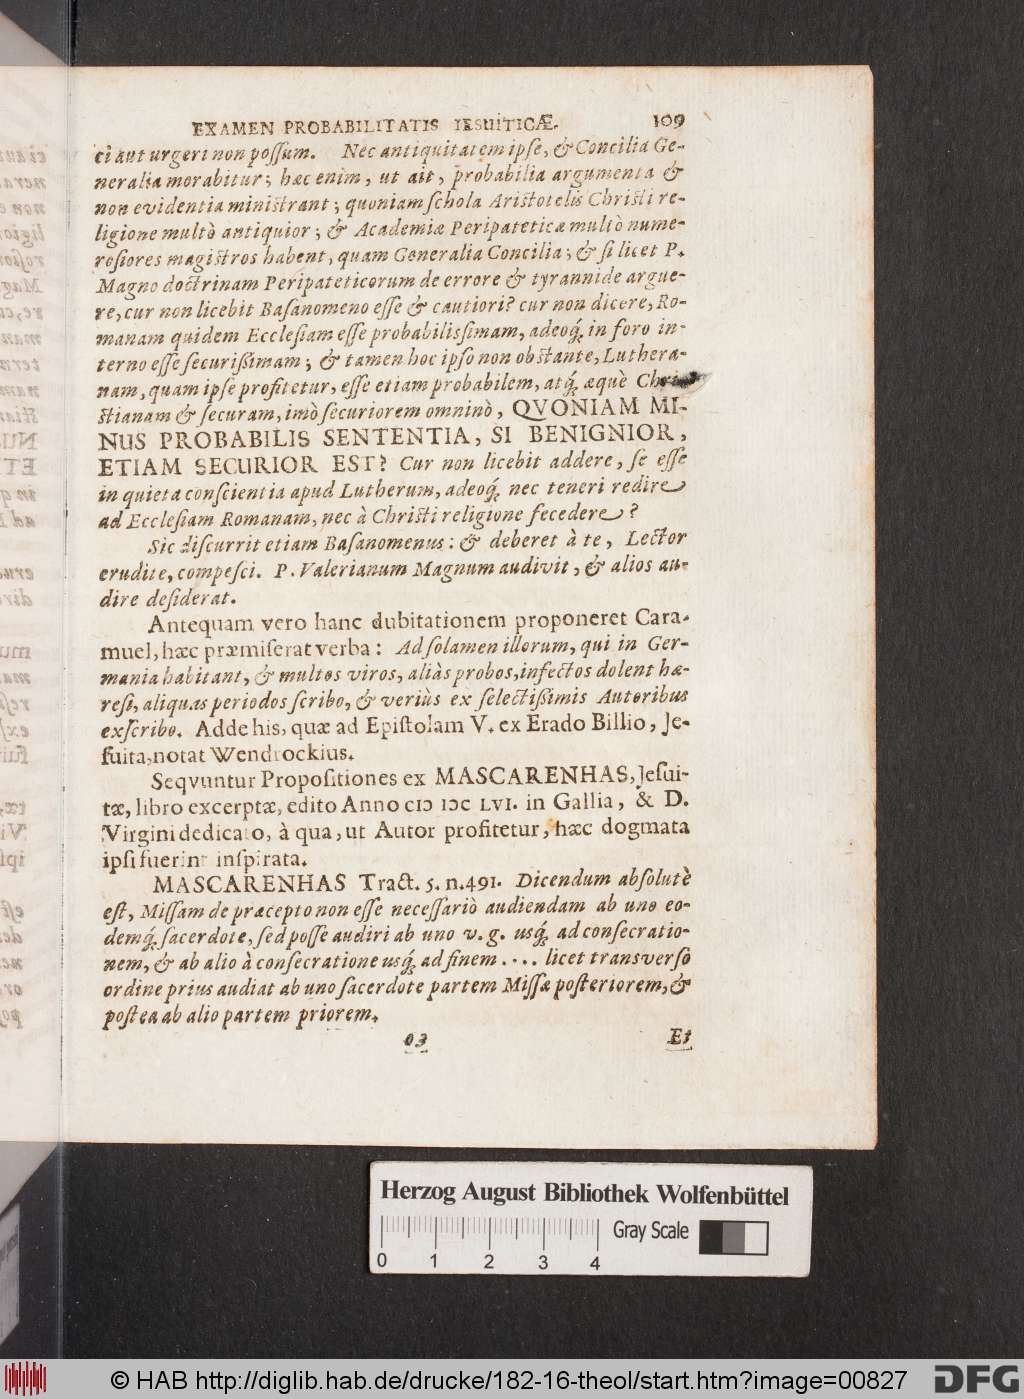 EXAMEN PROBABILITATIS IESUITICÆ. 109
ci aut urgeri non possum. Nec antiquitatem ipse, & Concilia Ge-
neralia morabitur; hæc enim, ut ait, probabilia argumenta &
non evidentia ministrant; quoniam schola Aristotelis Christi re-
ligione multò antiquior; & Academiæ Peripateticæ multò nume-
rosiores magistros habent, quam Generalia Concilia; & si licet P.
Magno doctrinam Peripateticorum de errore & tyrannide argue-
re, cur non licebit Basanomeno esse & cautiori? cur non dicere, Ro-
manam quidem Ecclesiam esse probabilissimam, adeoq́; in foro in-
terno esse securißimam; & tamen hoc ipso non obstante, Luthera-
nam, quam ipse profitetur, esse etiam probabilem, atq́; æquè Chri-
stianam & securam, imò securiorem omninò, QVONIAM MI-
NUS PROBABILIS SENTENTIA, SI BENIGNIOR,
ETIAM SECURIOR EST? Cur non licebit addere, se esse
in quieta conscientia apud Lutherum, adeoq́; nec teneri redire
ad Ecclesiam Romanam, nec à Christi religione secedere?
Sic discurrit etiam Basanomenus: & deberet à te, Lector
erudite, compesci. P. Valerianum Magnum audivit, & alios au-
dire desiderat.
Antequam vero hanc dubitationem proponeret Cara-
muel, hæc præmiserat verba: Ad solamen illorum, qui in Ger-
mania habitant, & multos viros, aliàs probos, infectos dolent hæ-
resi, aliquas periodos scribo, & veriùs ex selectißimis Autoribus
exscribo. Adde his, quæ ad Epistolam V. ex Erado Billio, Je-
suita, notat Wendrockius.
Seqvuntur Propositiones ex MASCARENHAS, Jesui-
tæ, libro excerptæ, edito Anno CIↃ IↃC LVI. in Gallia, & D.
Virgini dedicato, à qua, ut Autor profitetur, hæc dogmata
ipsi fuerint inspirata.
MASCARENHAS Tract. 5. n. 491. Dicendum absolutè
est, Missam de præcepto non esse necessariò audiendam ab uno eo-
demq́; sacerdote, sed posse audiri ab uno v. g. usq́; ad consecratio-
nem, & ab alio à consecratione usq́; ad finem .... licet transverso
ordine prius audiat ab uno sacerdote partem Missæ posteriorem, &
postea ab alio partem priorem.
o 3 Et
Herzog August Bibliothek Wolfenbüttel
Gray Scale
0 1 2 3 4
© HAB http://diglib.hab.de/drucke/182-16-theol/start.htm?image=00827
DFG